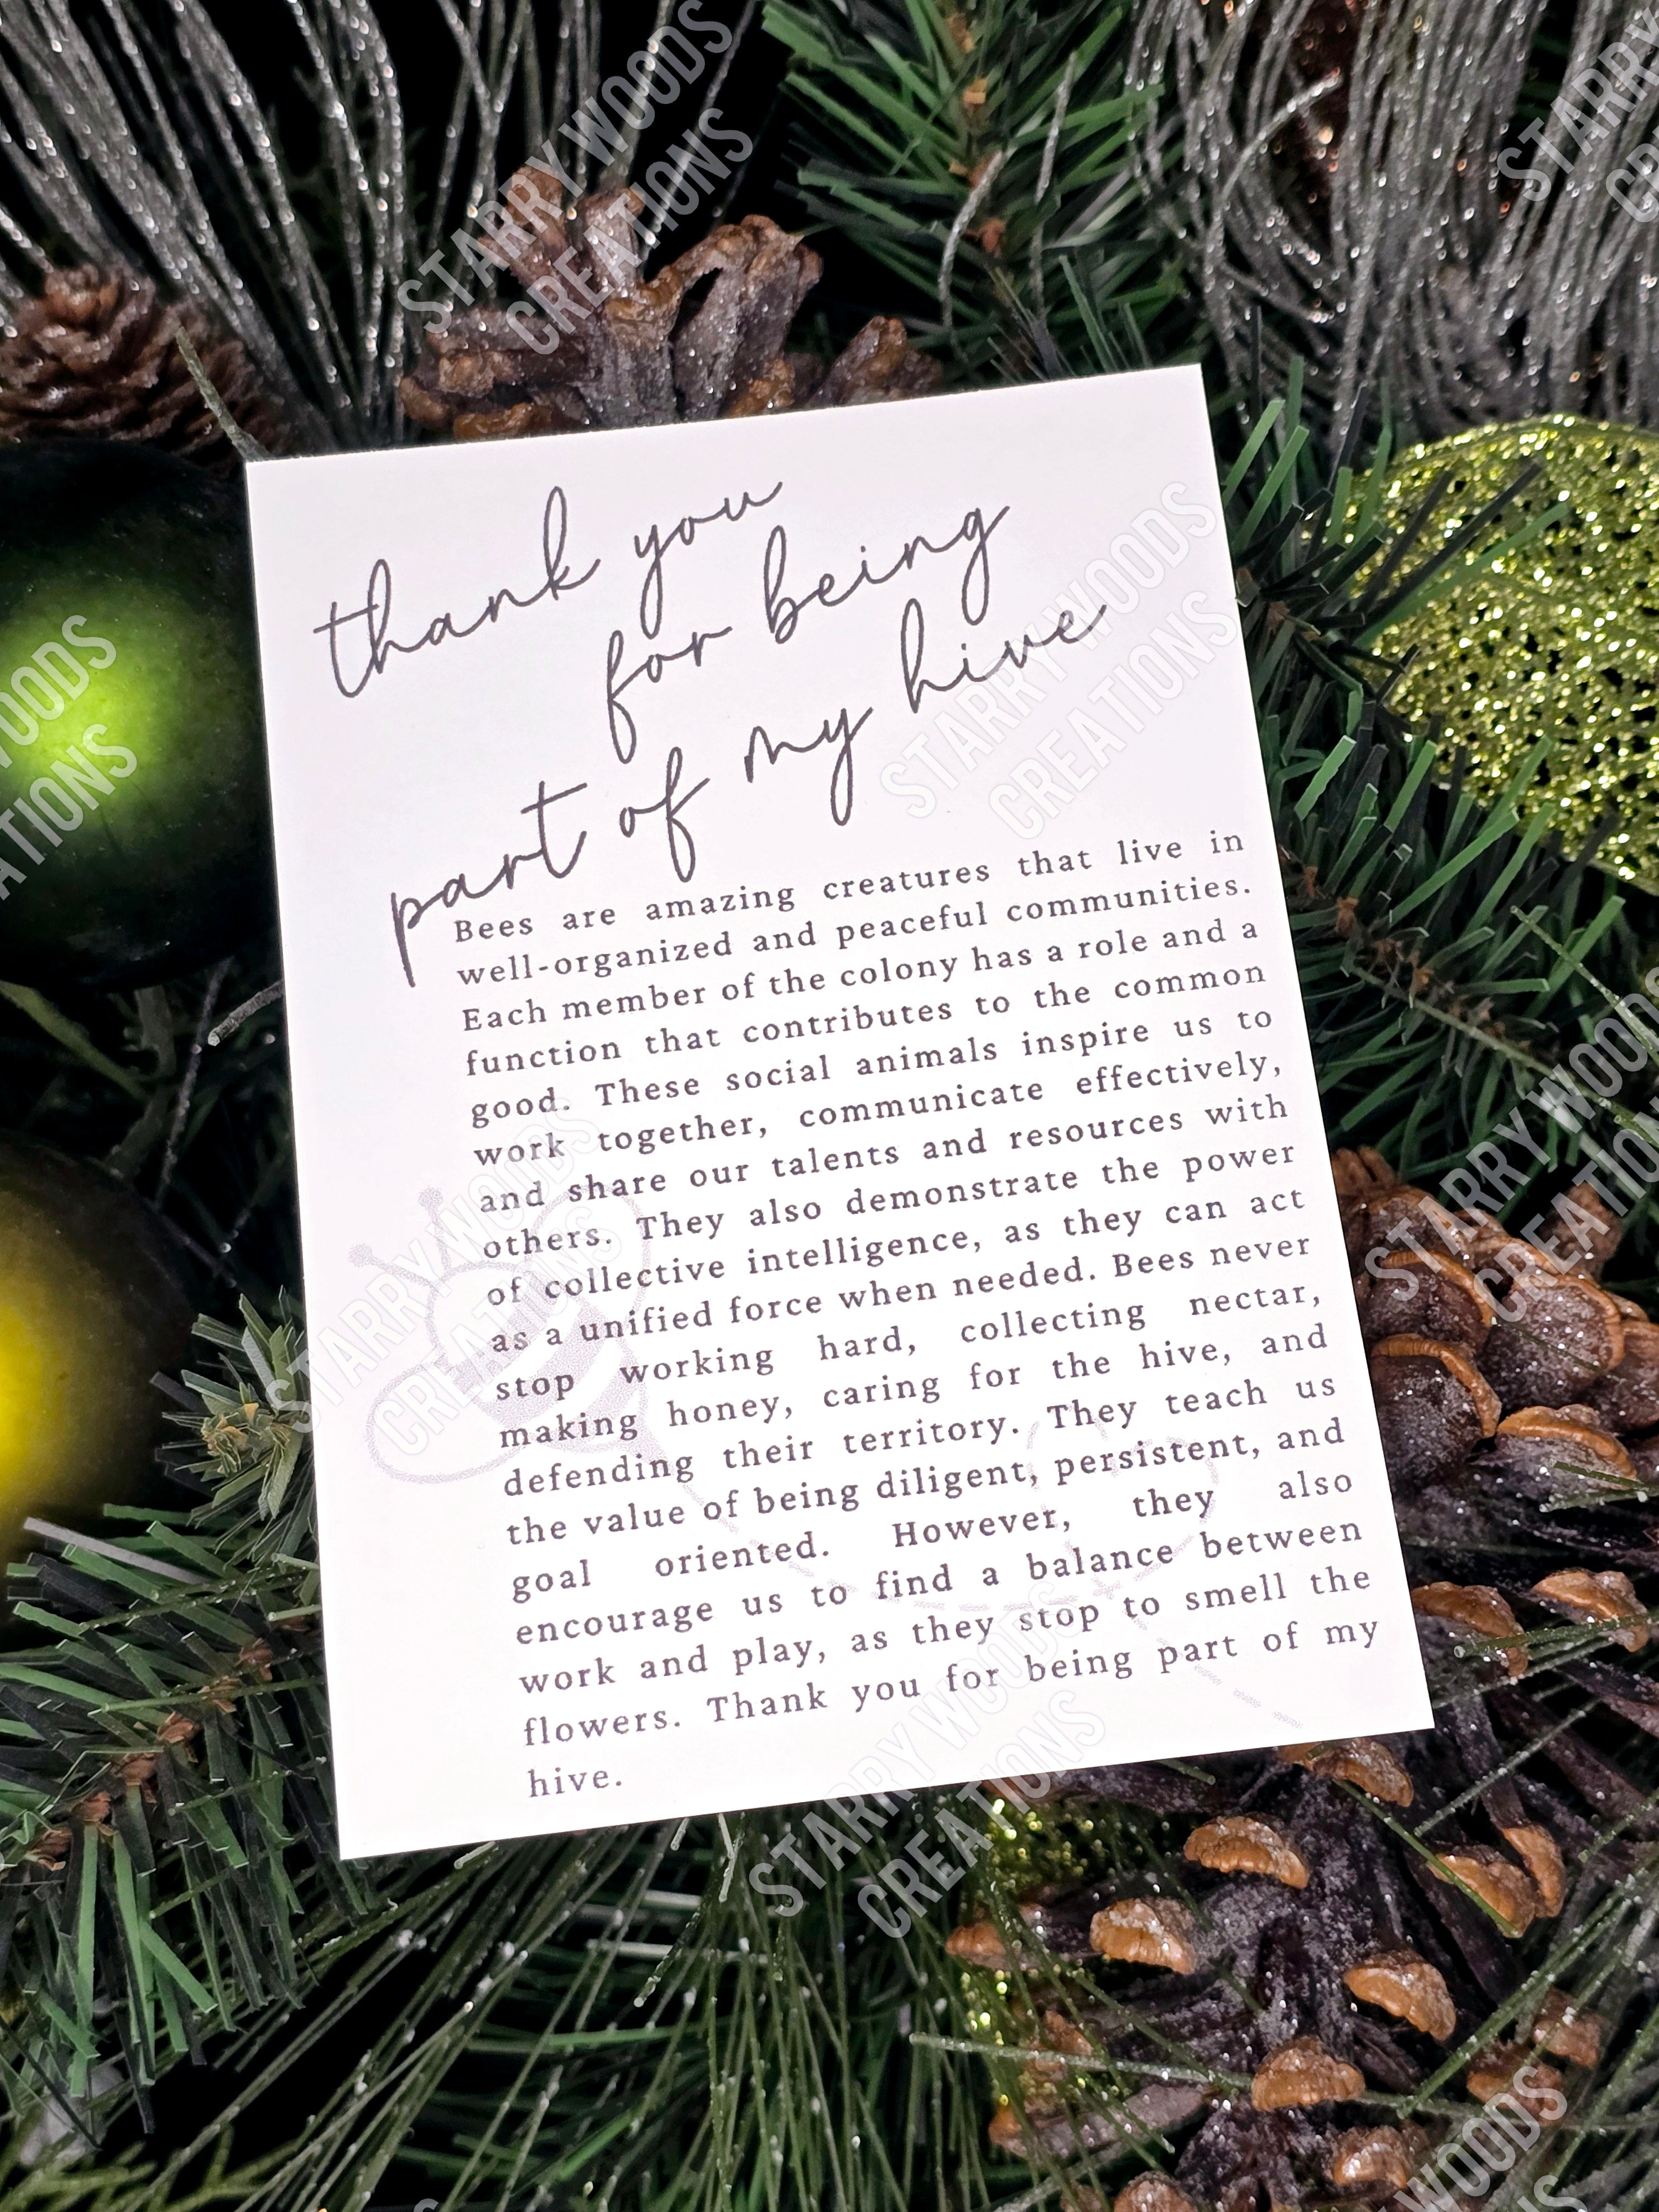 thank you
for being
part of my hive
Bees are amazing creatures that live in
well-organized and peaceful communities.
Each member of the colony has a role and a
function that contributes to the common
good. These social animals inspire us to
work together, communicate effectively,
and share our talents and resources with
others. They also demonstrate the power
of collective intelligence, as they can act
as a unified force when needed. Bees never
stop working hard, collecting nectar,
making honey, caring for the hive, and
defending their territory. They teach us
the value of being diligent, persistent, and
goal oriented. However, they also
encourage us to find a balance between
work and play, as they stop to smell the
flowers. Thank you for being part of my
hive.
STARRY WOODS
CREATIONS
STARRY
WOODS
CREATIONS
STARRY WOODS
CREATIONS
STARRY WOODS
CREATIONS
STARRY WOODS
CREATIONS
STARRY WOODS
CREATIONS
WOODS